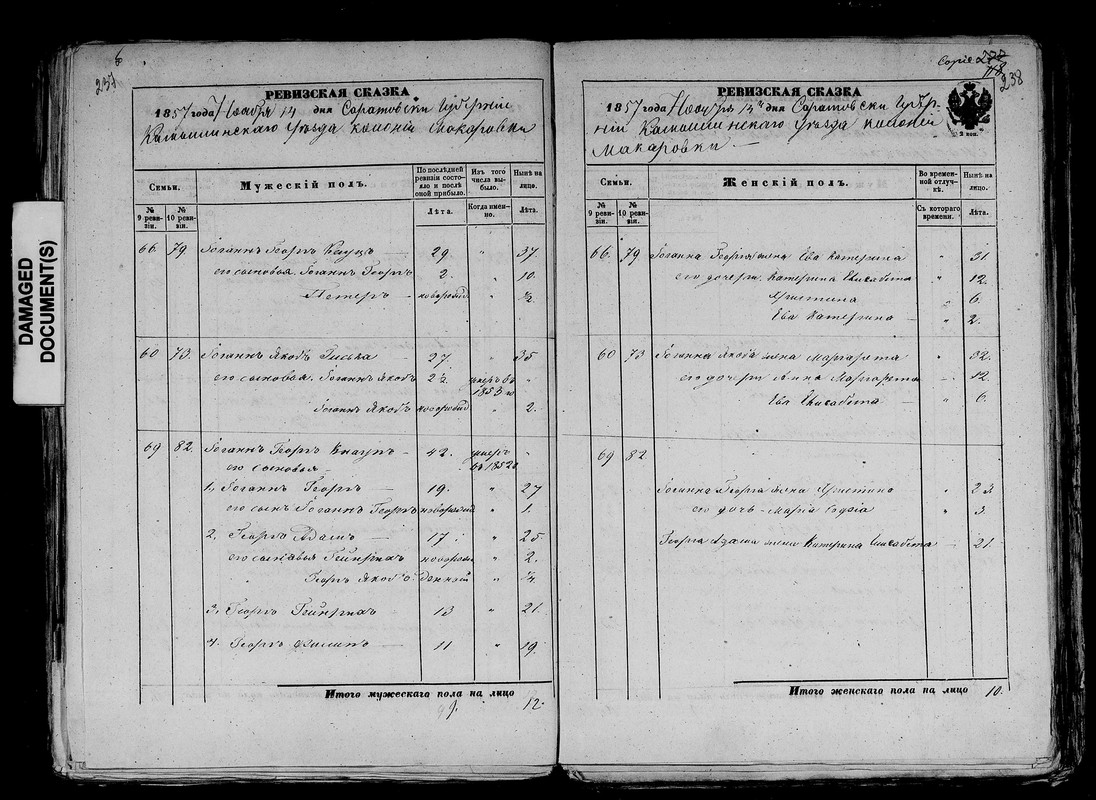 DAMAGED
DOCUMENT(S)
237
РЕВИЗСКАЯ СКАЗКА
1857 года Ноября 14 дня Саратовски Губерніи
Камышинскаго Уѣзда колоніи Макаровки
Семьи.
Мужескій полъ.
По послѣдней ревизіи состояло и послѣ оной прибыло.
Изъ того числа выбыло.
Нынѣ на лицо.
№ 9 ревизіи.
№ 10 ревизіи.
Лѣта.
Когда именно.
Лѣта.
66. 79. Іоганнъ Георгъ 29 " 37.
его сыновья. Іоганнъ Георгъ 2. " 10.
Петеръ новорожд " ½
60 73. Іоганнъ Якобъ 27. " 35
его сыновья. Іоганнъ Якобъ 2½. умеръ въ 1853 "
Іоганнъ Якобъ новорожд " 2.
69 82. Іоганнъ Георгъ Кнауръ 42. умеръ въ 1852 "
его сыновья
1, Іоганнъ Георгъ 19. " 27
его сынъ Іоганнъ Георгъ новорожд " 1.
2, Георгъ Адамъ 17 " 25
его сыновья Гейнрихъ новорож " 2.
Георгъ Якобъ денный " ¼
3, Георгъ Гейнрихъ 13 " 21
4. Георгъ Филипъ 11 " 19.
Итого мужескаго пола на лицо 12.
Copie 277
118
238
РЕВИЗСКАЯ СКАЗКА
1857 года Ноября 14 дня Саратовски Губер-
ніи Камышинскаго Уѣзда колоніи
Макаровки
Семьи.
Женскій полъ.
Во временной отлучкѣ.
Нынѣ на лицо.
№ 9 ревизіи.
№ 10 ревизіи.
Съ котораго времени.
Лѣта.
66. 79 Іоганна Георга жена Ева Катерина " 31
его дочери. Катерина Елисабета " 12.
Христина " 6.
Ева Катерина " 2.
60 73 Іоганна Якоба жена Маргарета " 32.
его дочери Анна Маргарета 12.
Ева Елисабета " 6.
69 82
Іоганна Георга жена Христина " 23.
его дочь Марія Софія " 3
Георга Адама жена Катерина Елисабета 21
Итого женскаго пола на лицо 10.